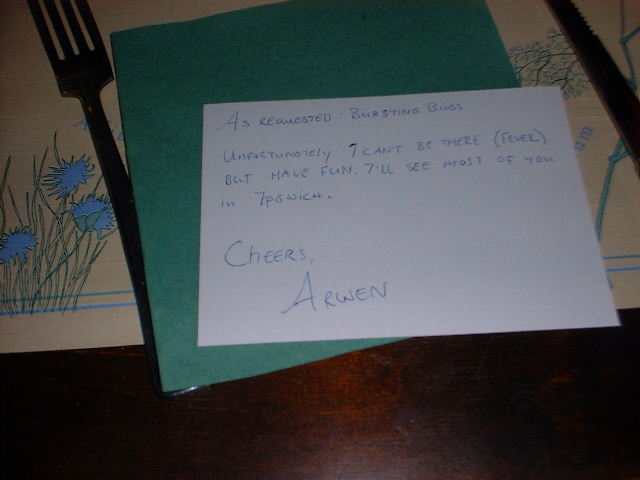 As requested: Bursting Bugs.
Unfortunately I can't be there (fever)
but have fun. I'll see most of you
in Ipswich.
Cheers,
Arwen